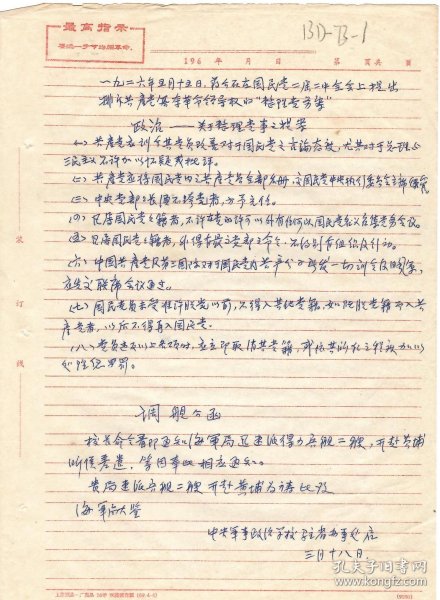 最高指示
要进一步节约闹革命。
BD-B-1
196 年 月 日 第 页共 页
一九二六年五月十五日,蒋介石在国民党二届二中全会上提出
排斥共产党篡夺革命领导权的“整理党务案”
政治——关于整理党事之提案
(一)共产党应训令其党员改善对于国民党之言论态度,尤其对于总理与
三民主义不许加以怀疑或批评。
(二)共产党应将国民党内之共产党员全部名册,交国民党中央执行委员会主席保管
(三)中央党部之长须不跨党者,方予充任。
(四)凡属国民党之籍者,不许在党的许可以外有任何以国民党名义召集党员会议。
(五)凡属国民党之籍者,非得有最高党部之命令,不得别有组织及行动。
(六)中国共产党及第三国际对于国民党内共产分子所发一切训令及
应先交联席会议通过。
(七)国民党员未受准许脱党以前,不得入其他党籍,如脱党籍而入共
产党者,以后不得再入国民党。
(八)党员违反以上各项时,应立即取消其党籍,或依其所犯之程度加以
惩罚。
调舰令函
校长命令着即通知海军局迅速派得力兵舰二艘,开赴黄埔
听候差遣,等因奉此相应通知。
贵局速派兵舰二艘开赴黄埔为祷此致
海军局大鉴
中央军事政治学校驻省办事处启
三月十八日
装
订
线